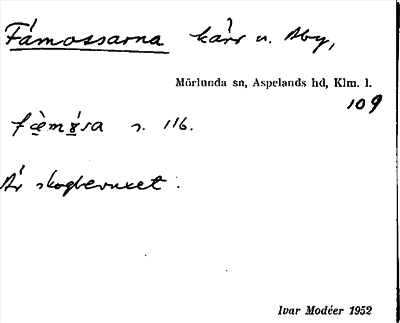 Fámossarna kärr n. Aby,
Mörlunda sn, Aspelands hd, Klm. l.
109
s. 116.
Är skogbevuxet.
Ivar Modéer 1952